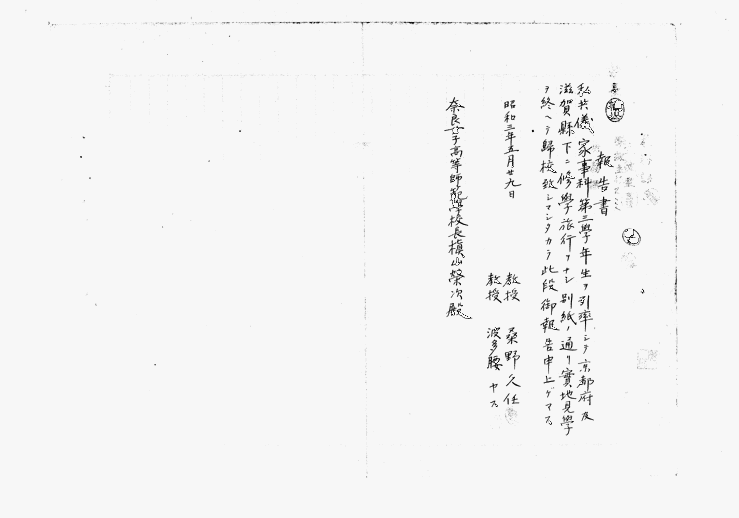 報告書
私共儀家事科第三學年生ヲ引率シテ京都府及
滋賀縣下ニ修學旅行ヲナシ別紙ノ通リ實地見學
ヲ終ヘテ歸校致シマシタカラ此段御報告申上ゲマス
昭和三年五月廿九日
教授 桑野久任
教授 波多腰ヤス
奈良女子高等師範學校長槇山榮次殿